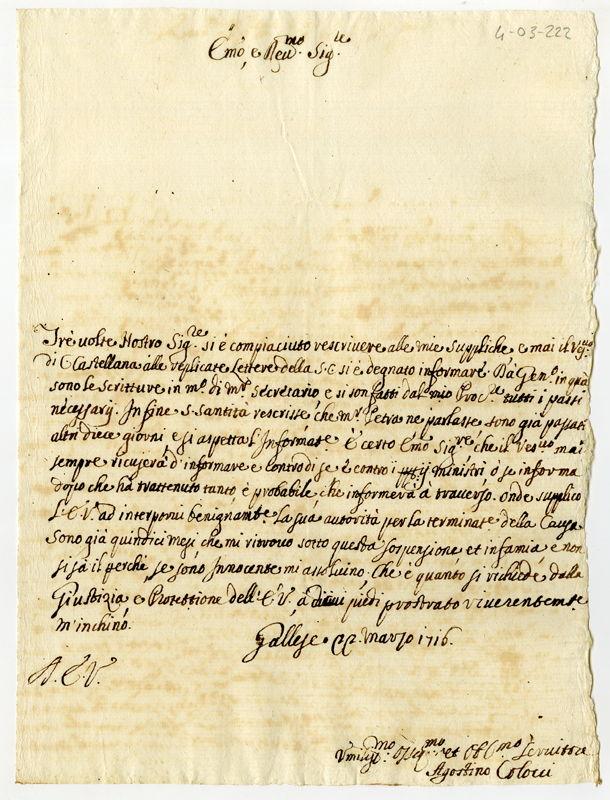 4-03-222
Emo, e Reu.mo Sig.re
Trè uolte Nostro Sig.re si è compiaciuto rescriuere alle mie suppliche e mai il Vesc.uo
di C Castellana alle replicate Lettere della S. C. si è degnato informare. Da Gen.o in quà
sono le scritture in m.o di m.r Secretario e si son fatti dal mio Proc.re tutti i passi
necessarij. In fine S. Santità rescrisse che m.r Petra ne parlasse sono già passati
altri diece giorni e si aspetta l'Informat.e È certo Emo Sig.re che il Vesc.uo mai
sempre ricuserà d'informare e contro di se, è contro i suoi ministri ò se informa
dopo che ha trattenuto tanto, è probabile che informerà à trauerso. onde supplico
L'E. V. ad interporui benignam.te La sua autorità per la terminat.e della Causa
Sono già quindici mesi che mi ritrouo sotto questa sospensione et infamia, e non
si sà il perche, se sono Innocente mi assoluino. Che è quanto si richiede dalla
Giustizia e Protettione dell'E. V., à cui piedi prostrato viuerentemte
m'inchino.
Gallese 22. marzo 1716.
A. E. V.
Vmiliss.mo Deu.mo et Obl.mo Seruitore
Agostino Colocci